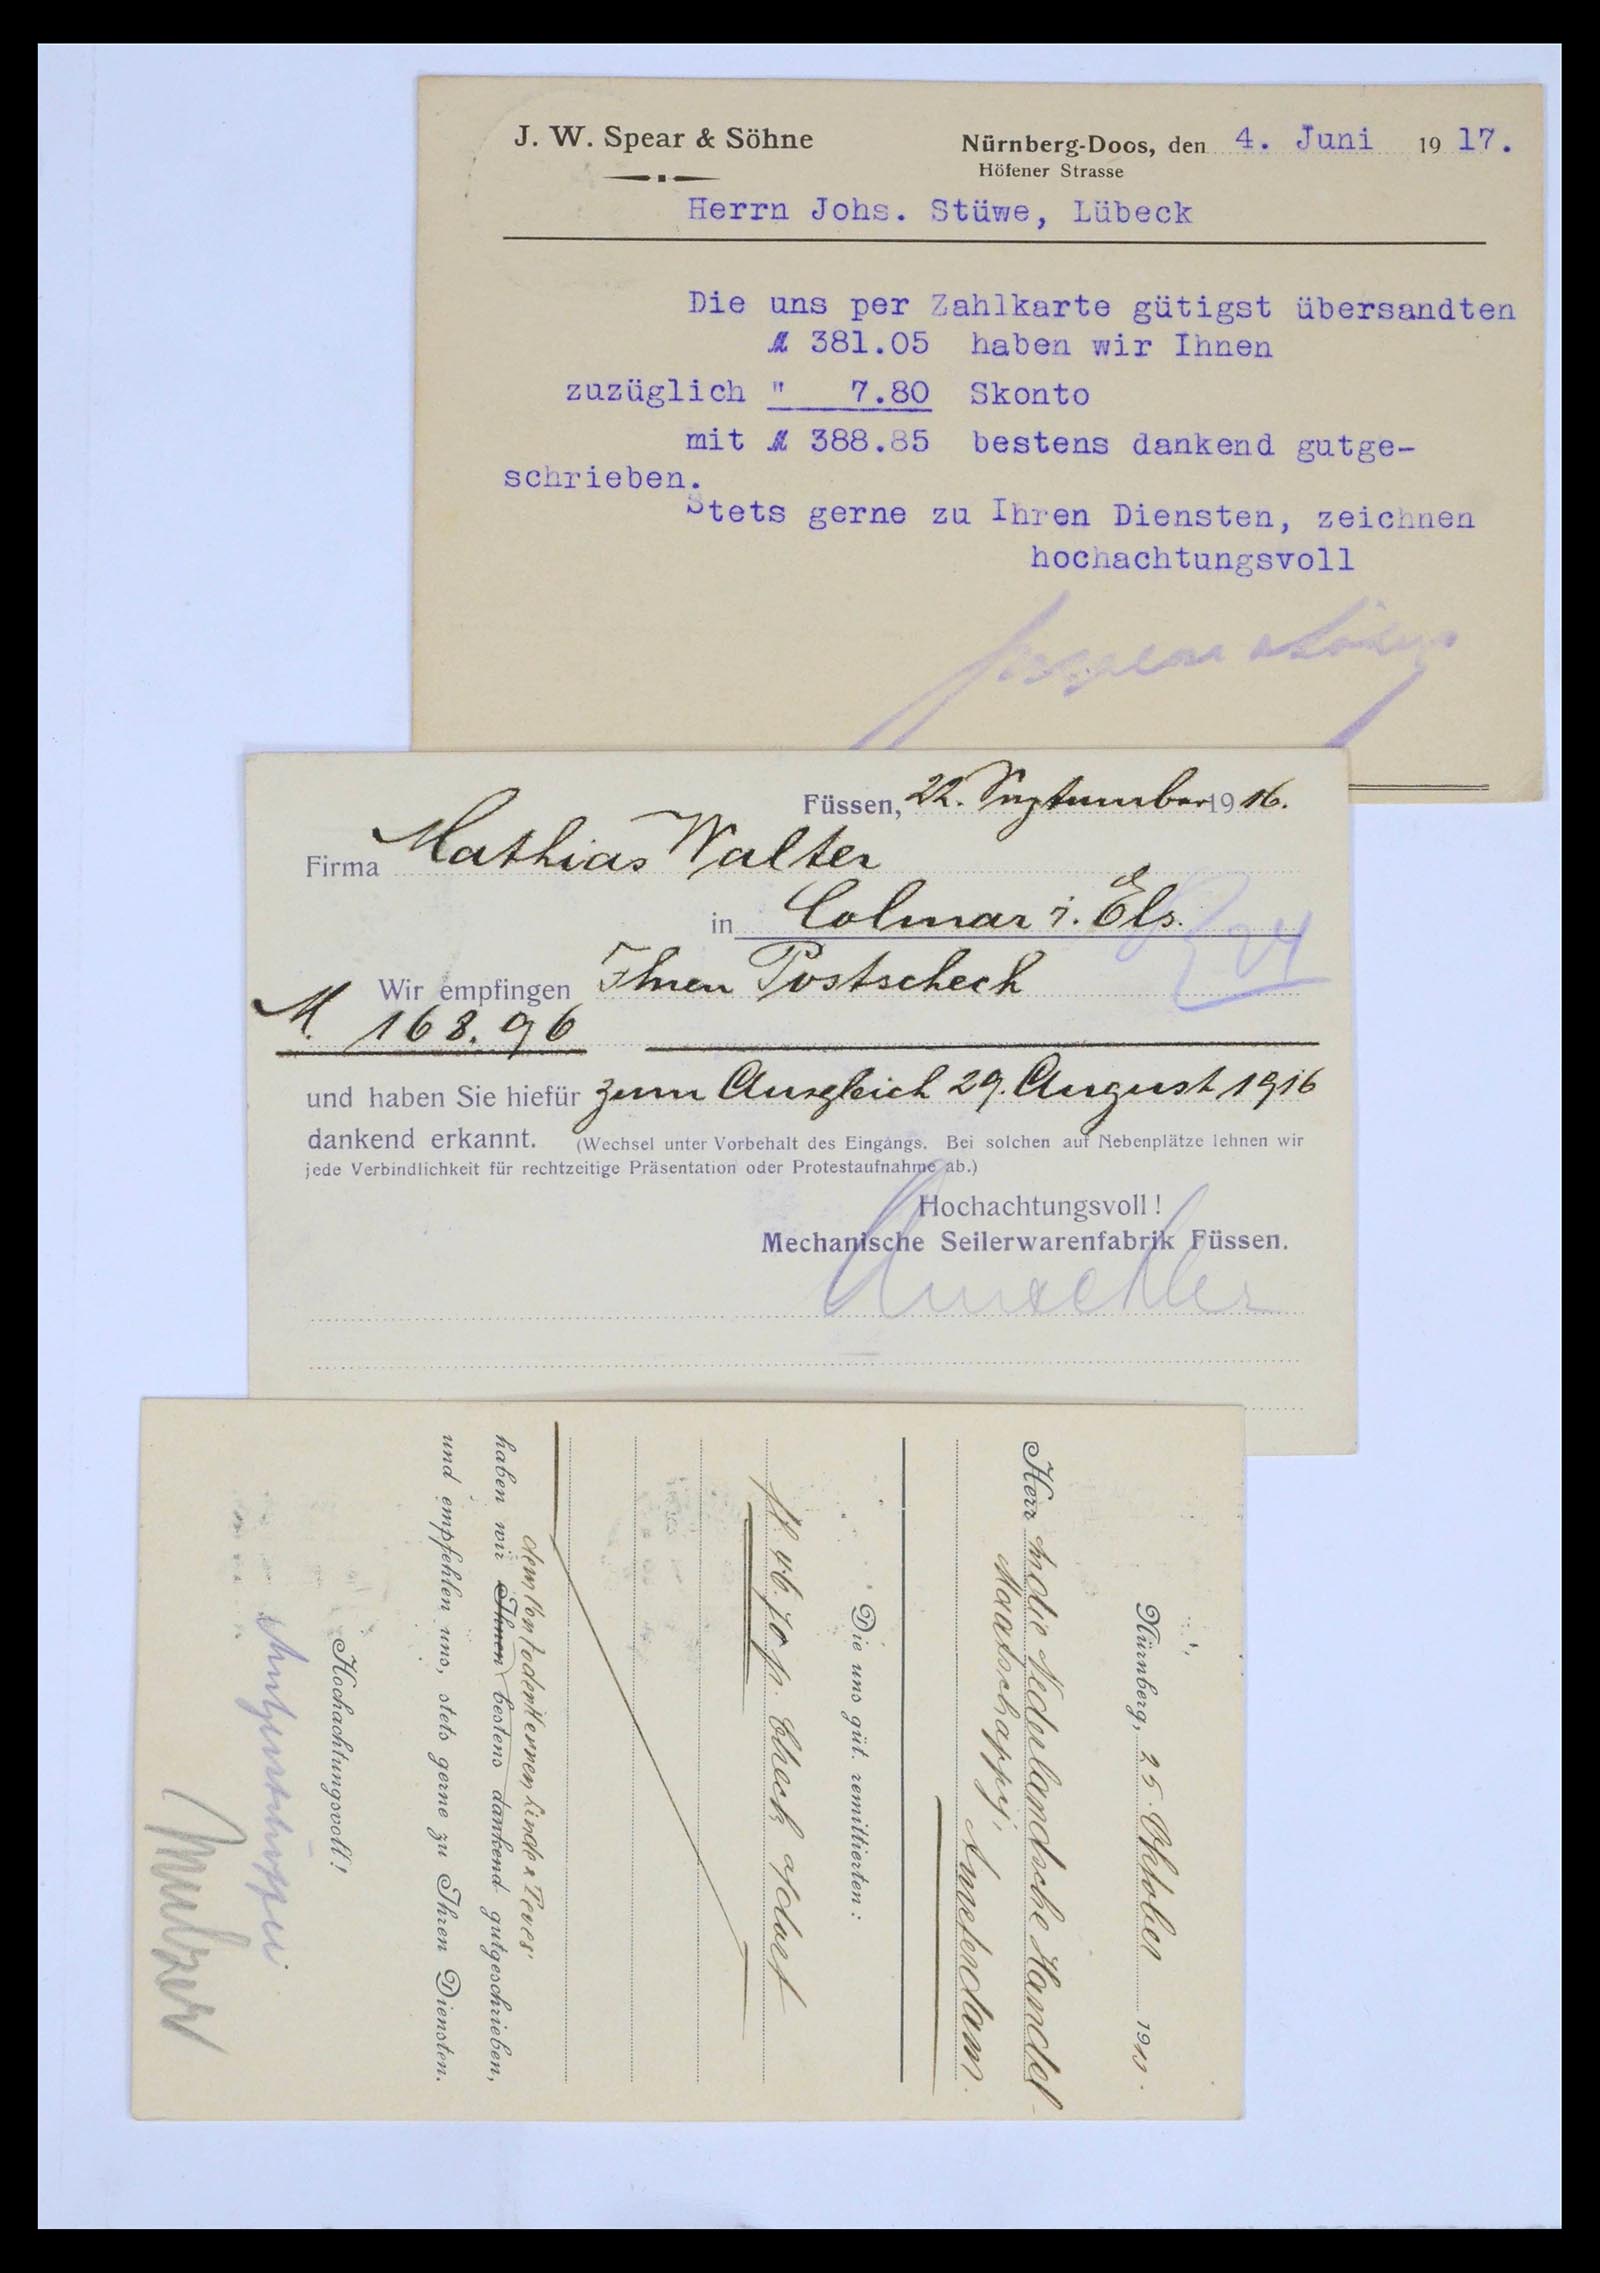 J. W. Spear & Söhne
Nürnberg-Doos, den 4. Juni 1917.
Höfener Strasse
Herrn Johs. Stüwe, Lübeck
Die uns per Zahlkarte gütigst übersandten
ℳ 381.05 haben wir Ihnen
zuzüglich " 7.80 Skonto
mit ℳ 388.85 bestens dankend gutge-
schrieben.
Stets gerne zu Ihren Diensten, zeichnen
hochachtungsvoll
Füssen, 22. September 1916.
Firma Mathias Walter
in Colmar i. Els.
Wir empfingen Ihren Postscheck
M. 168.96
und haben Sie hiefür zum Ausgleich 29. August 1916
dankend erkannt. (Wechsel unter Vorbehalt des Eingangs. Bei solchen auf Nebenplätze lehnen wir
jede Verbindlichkeit für rechtzeitige Präsentation oder Protestaufnahme ab.)
Hochachtungsvoll!
Mechanische Seilerwarenfabrik Füssen.
Nürnberg, 25. Oktober 191
Herr Nederlandsche Handel-
Maatschappij,
Amsterdam.
Die uns güt. remittierten:
p. Check
Herren Linde & Teves'
haben wir Ihnen bestens dankend gutgeschrieben,
und empfehlen uns, stets gerne zu Ihren Diensten.
Hochachtungsvoll!